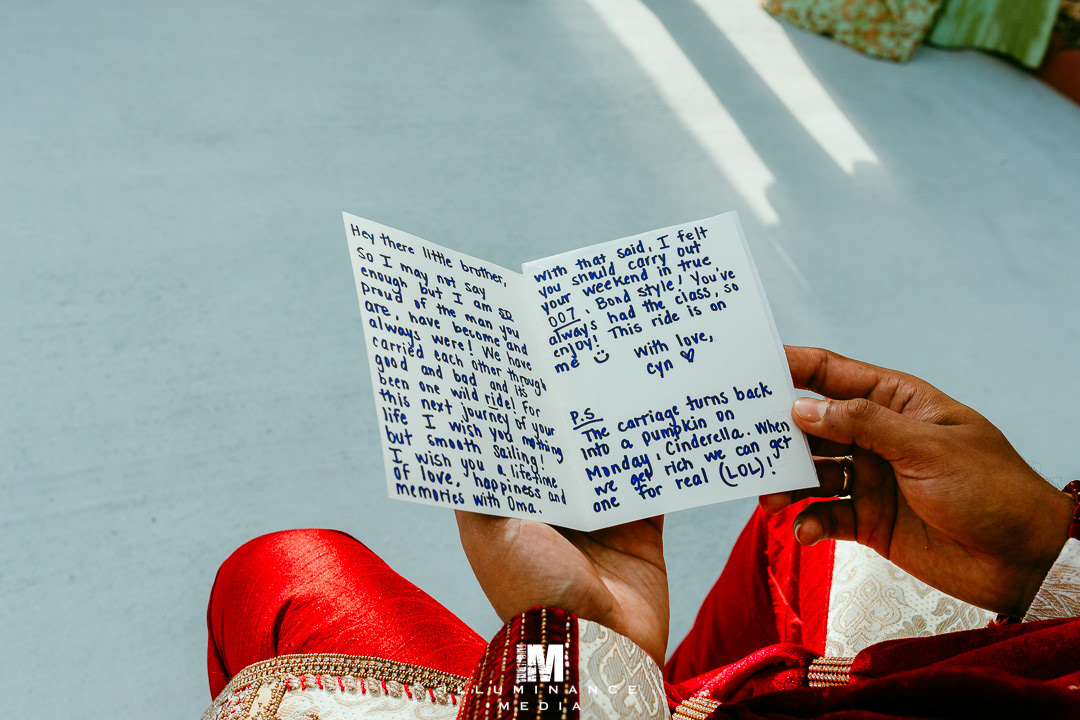 Hey there little brother,
So I may not say
enough but I am so
proud of the man you
are, have become and
always were! We have
carried each other through
good and bad and its
been one wild ride! For
this next journey of your
life I wish you nothing
but smooth sailing!
I wish you a lifetime
of love, happiness and
memories with Oma.
With that said, I felt
you should carry out
your weekend in true
007. Bond style! You've
always had the class, so
enjoy! This ride is on
me
With love,
Cyn
P.S
The carriage turns back
into a pumpkin on
Monday, Cinderella. When
we get rich we can get
one for real (LOL)!
M
ILLUMINANCE
MEDIA